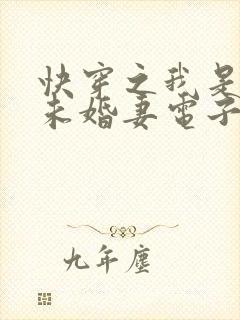 快穿之我是
未婚妻電子
九年塵